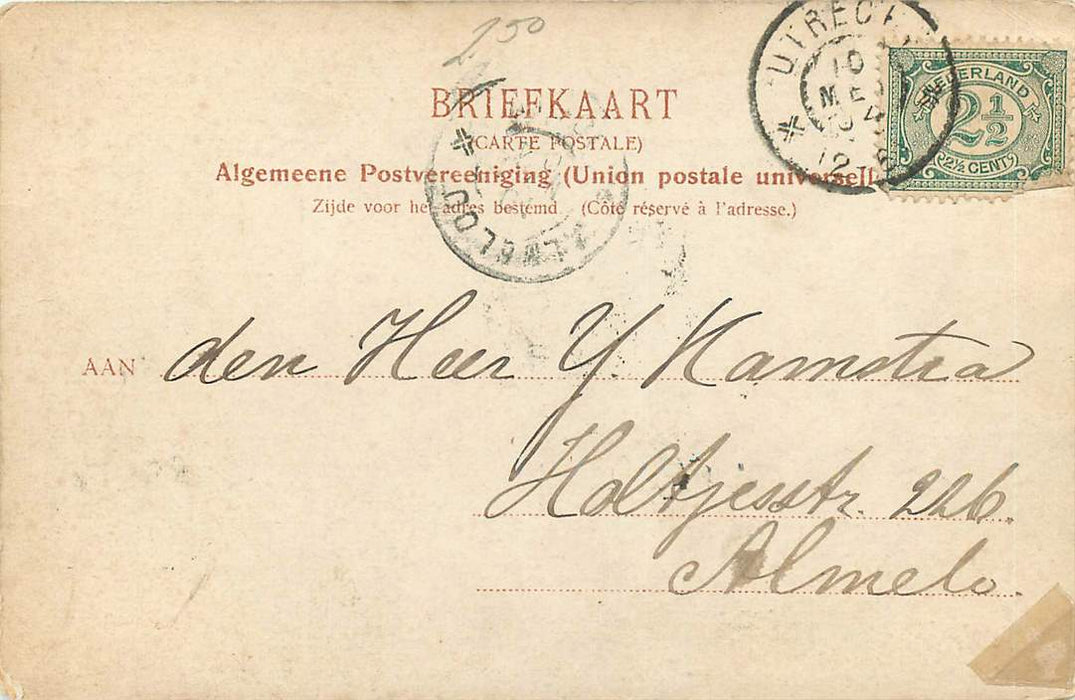 2.50
BRIEFKAART
(CARTE POSTALE)
Algemeene Postvereeniging (Union postale universell
Zijde voor het adres bestemd (Côté réservé à l'adresse.)
UTRECHT
10
ME
NEDERLAND
2½
2½ CENT
ALMELOO
AAN den Heer Y. Kamstra
Holtjesstr. 226.
Almelo.